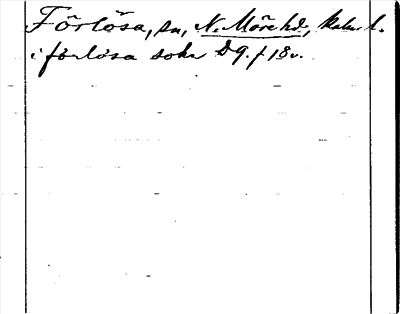 Förlösa, sn, N. Möre hd, Kalm. l.
i förlösa sokn D 9. f 18 v.